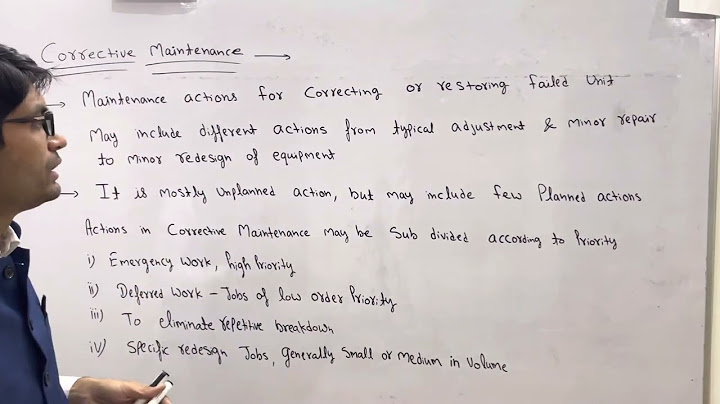 Corrective Maintenance →
→ Maintenance actions for Correcting or restoring failed Unit
May include different actions from typical adjustment & minor repair
to minor redesign of equipment
→ It is mostly unplanned action, but may include few Planned actions
Actions in Corrective Maintenance may be Sub divided according to Priority
i) Emergency work, high Priority
ii) Deferred work - Jobs of low order Priority
iii) To eliminate repetitive breakdown
iv) Specific redesign Jobs, generally small or medium in Volume